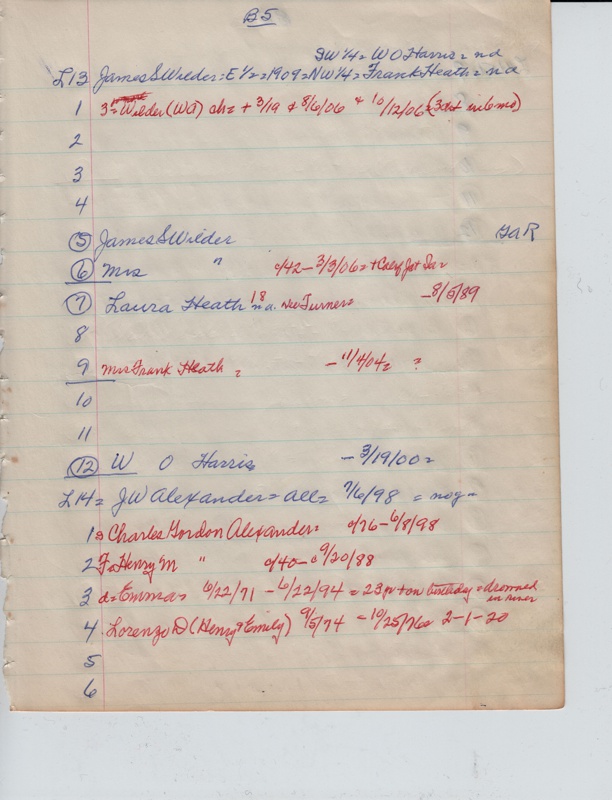 B5
SW 1/4 = W O Harris = nd
L13 James S Wilder = E 1/2 = 1909 = NW 1/4 = Frank Heath = nd
1 3 = Wilder (WO) ch = + 3/19 & 8/6/06 & 10/12/06 = (3 in 6 mo)
2
3
4
5 James S Wilder GAR
6 Mrs " c/42 - 3/3/06 =
7 Laura Heath 18 na. nee Turner = - 8/5/89
8
9 Mrs Frank Heath = - 11/4/04 = ?
10
11
12 W O Harris - 3/19/00 =
L14 = J W Alexander = all = 7/6/98 = nog =
1 = Charles Gordon Alexander = c/76 - 6/8/98
2 F = Henry M " c/40 - 9/20/88
3 d = Emma = 6/22/71 - 6/22/94 = 23 yr + on birthday = drowned in river
4 Lorenzo D (Henry & Emily) 9/5/74 = 10/25/76 = 2-1-20
5
6